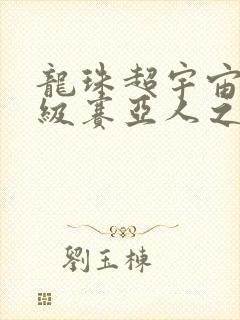 龍珠超宇宙
級賽亞人之
劉玉棟